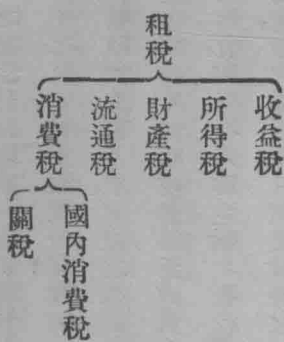 租稅
收益稅
所得稅
財產稅
流通稅
消費稅
國內消費稅
關稅